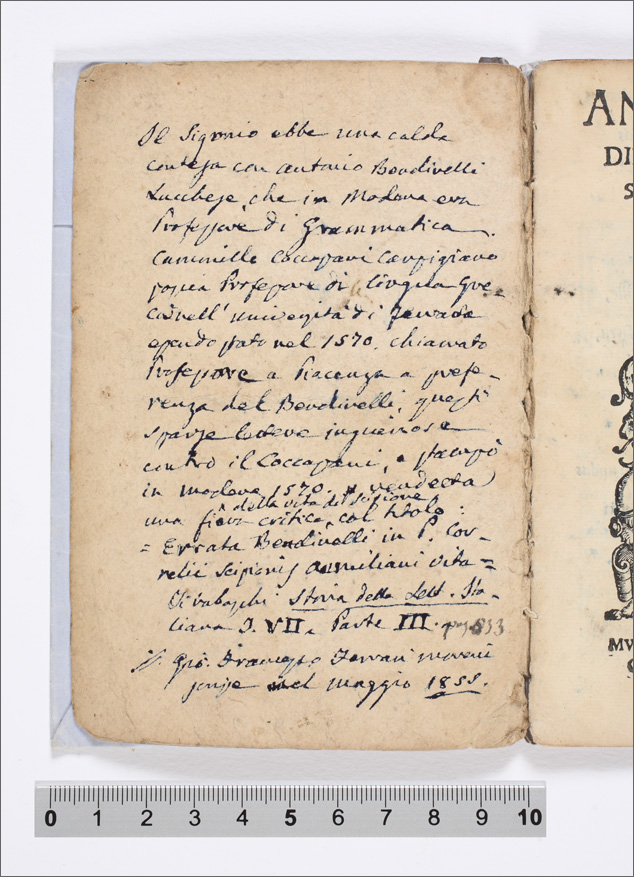 Il Sigonio ebbe una calda
contesa con Antonio Bendinelli
Lucchese, che in Modena era
Professore di Grammatica.
Cammillo Coccapani Carpigiano
poscia Professore di Lingua Gre-
ca nell' università di Ferrara
essendo stato nel 1570. chiamato
Professore a Piacenza a prefe-
renza del Bendinelli, questi
sparse lettere ingiuriose
contro il Coccapani, e stampò
in Modena 1570. vendetta
della vita di Scipione
una fiera critica, col titolo:
= Errata Bendinelli in P. Cor-
nelii Scipionis Aemiliani vita =
Tiraboschi Storia della Lett. Ita-
liana T. VII. Parte III. pag. 833
Gio. Francesco Ferrari Moreni
nel Maggio 1855.
AN
DI
S
MV
0 1 2 3 4 5 6 7 8 9 10